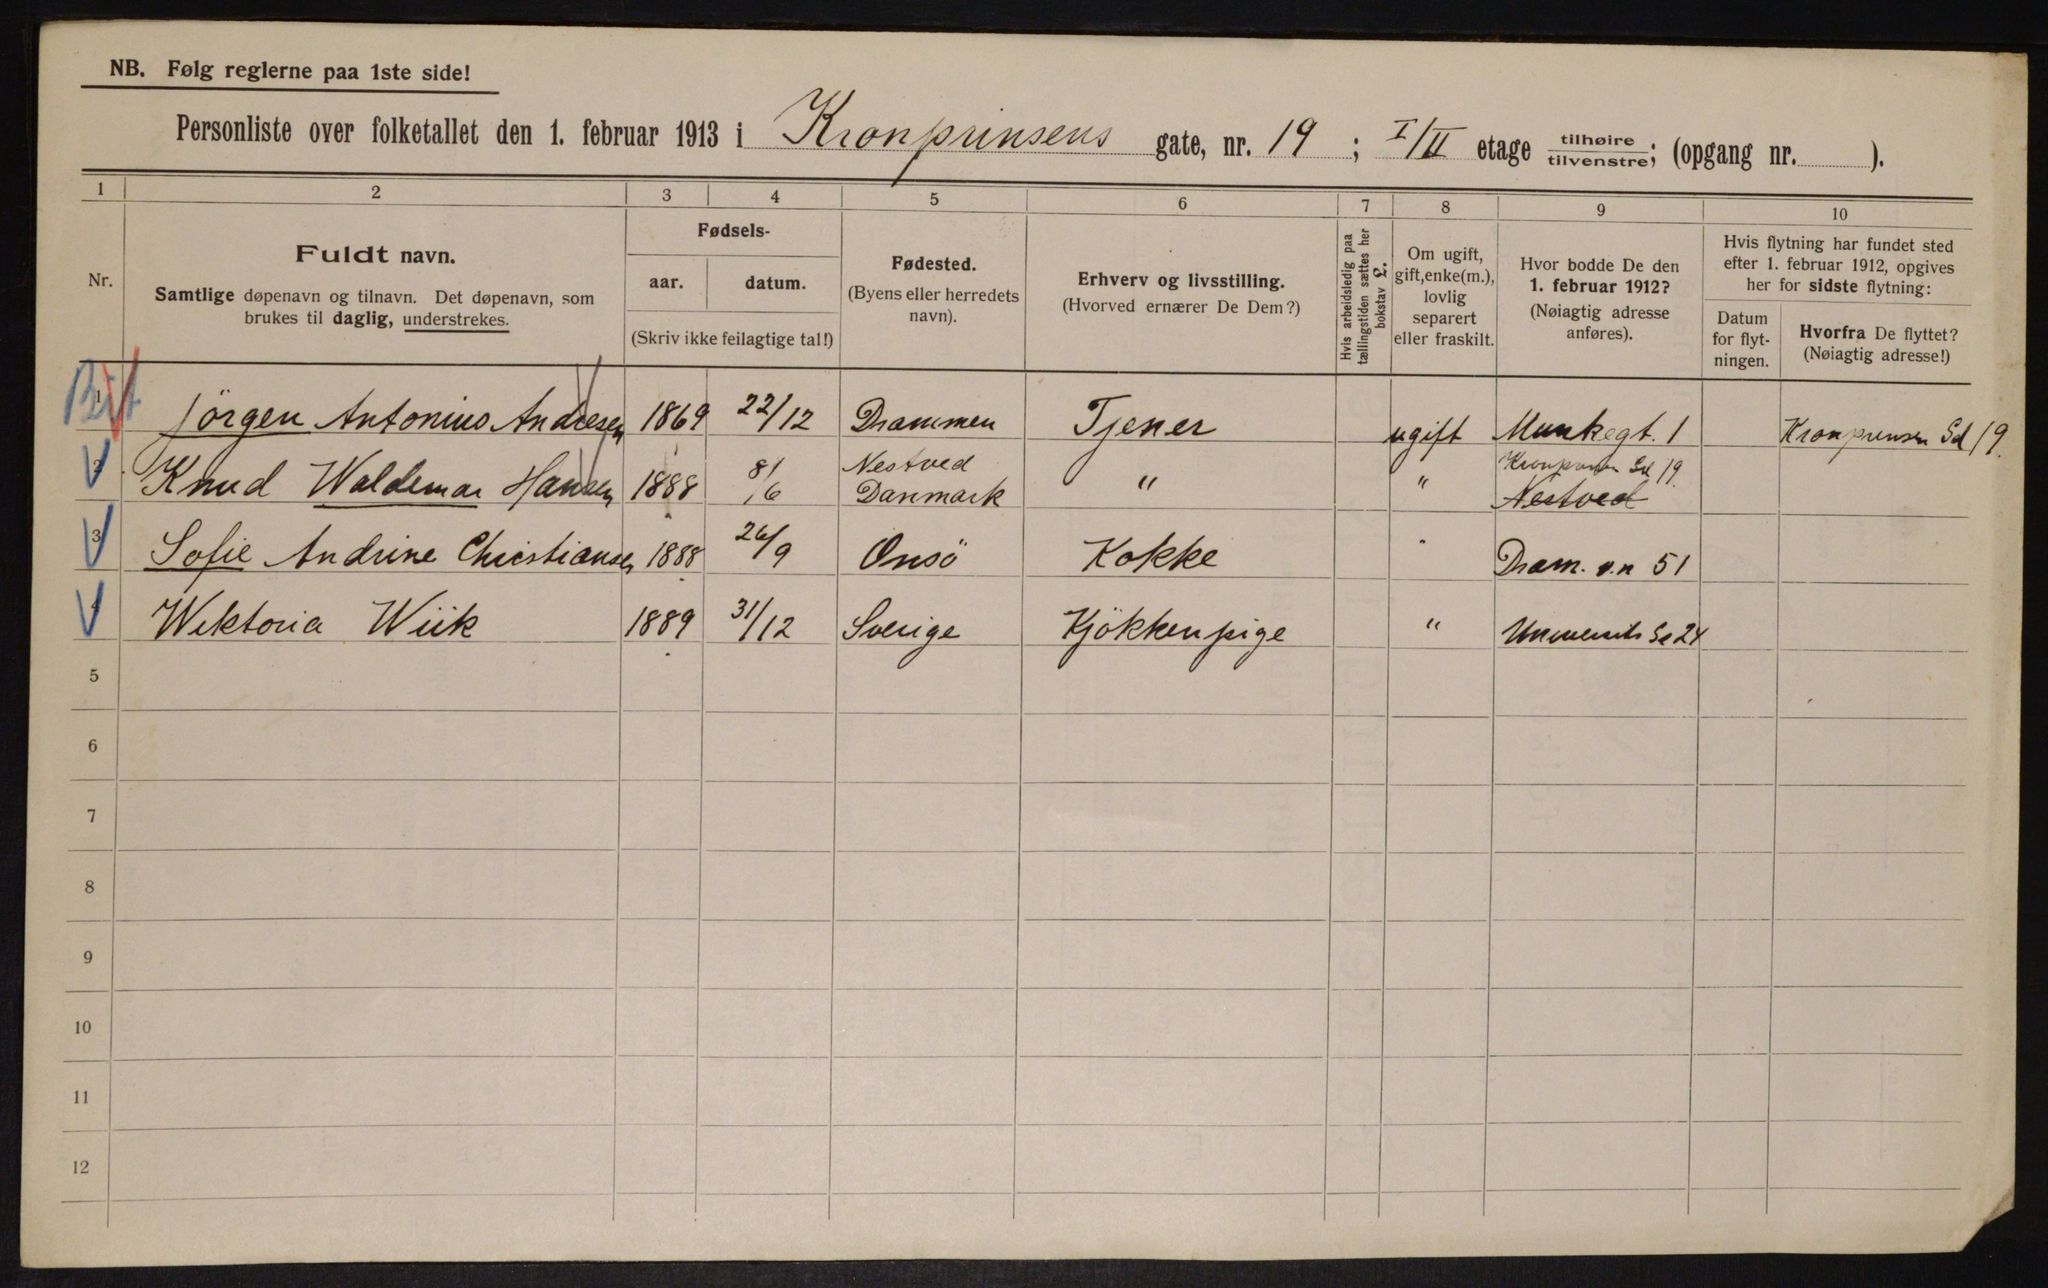 NB. Følg reglerne paa 1ste side!
Personliste over folketallet den 1. februar 1913 i Kronprinsens gate, nr. 19 ; I/II etage tilhøire/tilvenstre; (opgang nr. ).
1 2 3 4 5 6 7 8 9 10
Nr.
Fuldt navn.
Samtlige døpenavn og tilnavn. Det døpenavn, som
brukes til daglig, understrekes.
Fødsels-
aar. datum.
(Skriv ikke feilagtige tal!)
Fødested.
(Byens eller herredets
navn).
Erhverv og livsstilling.
(Hvorved ernærer De Dem?)
Hvis arbeidsledig paa
tællingstiden sættes her
bokstav £.
Om ugift,
gift, enke(m.),
lovlig
separert
eller fraskilt.
Hvor bodde De den
1. februar 1912?
(Nøiagtig adresse
anføres).
Hvis flytning har fundet sted
efter 1. februar 1912, opgives
her for sidste flytning:
Datum
for flyt-
ningen.
Hvorfra De flyttet?
(Nøiagtig adresse!)
1 Jörgen Antonius Andresen 1869 22/12 Drammen Tjener ugift Munkegt. 1 Kronprinsen Gd 19.
2 Knud Waldemar Hansen 1888 8/6 Nestved Danmark " " Nestved
3 Sofie Andrine Christiansen 1888 26/9 Onsö Kokke " Dram. v.n 51
4 Wiktoria Wiik 1889 31/12 Sverige Kjökkenpige " Universits Gd 24
5
6
7
8
9
10
11
12